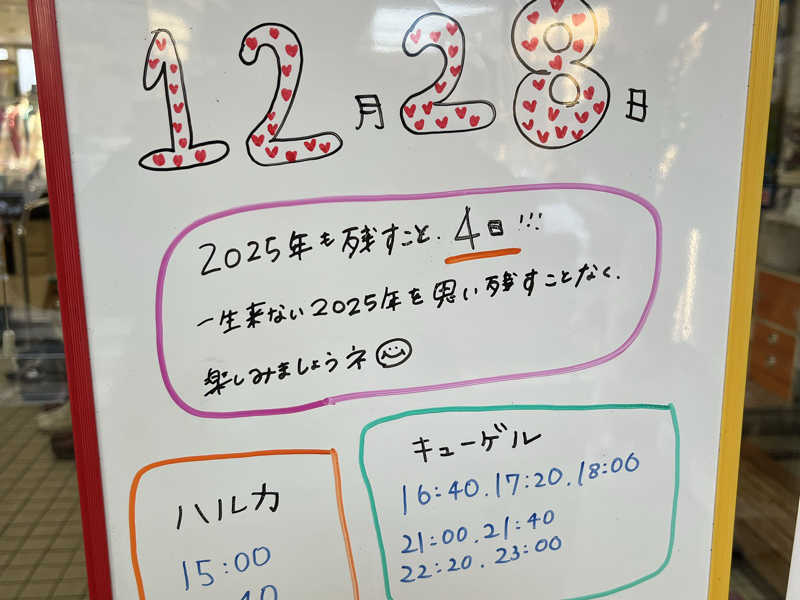 12月28日
2025年も残すこと、4日!!!
一生来ない2025年を思い残すことなく、
楽しみましょうネ
ハルカ
15:00
キューゲル
16:40.17:20.18:00
21:00.21:40
22:20.23:00